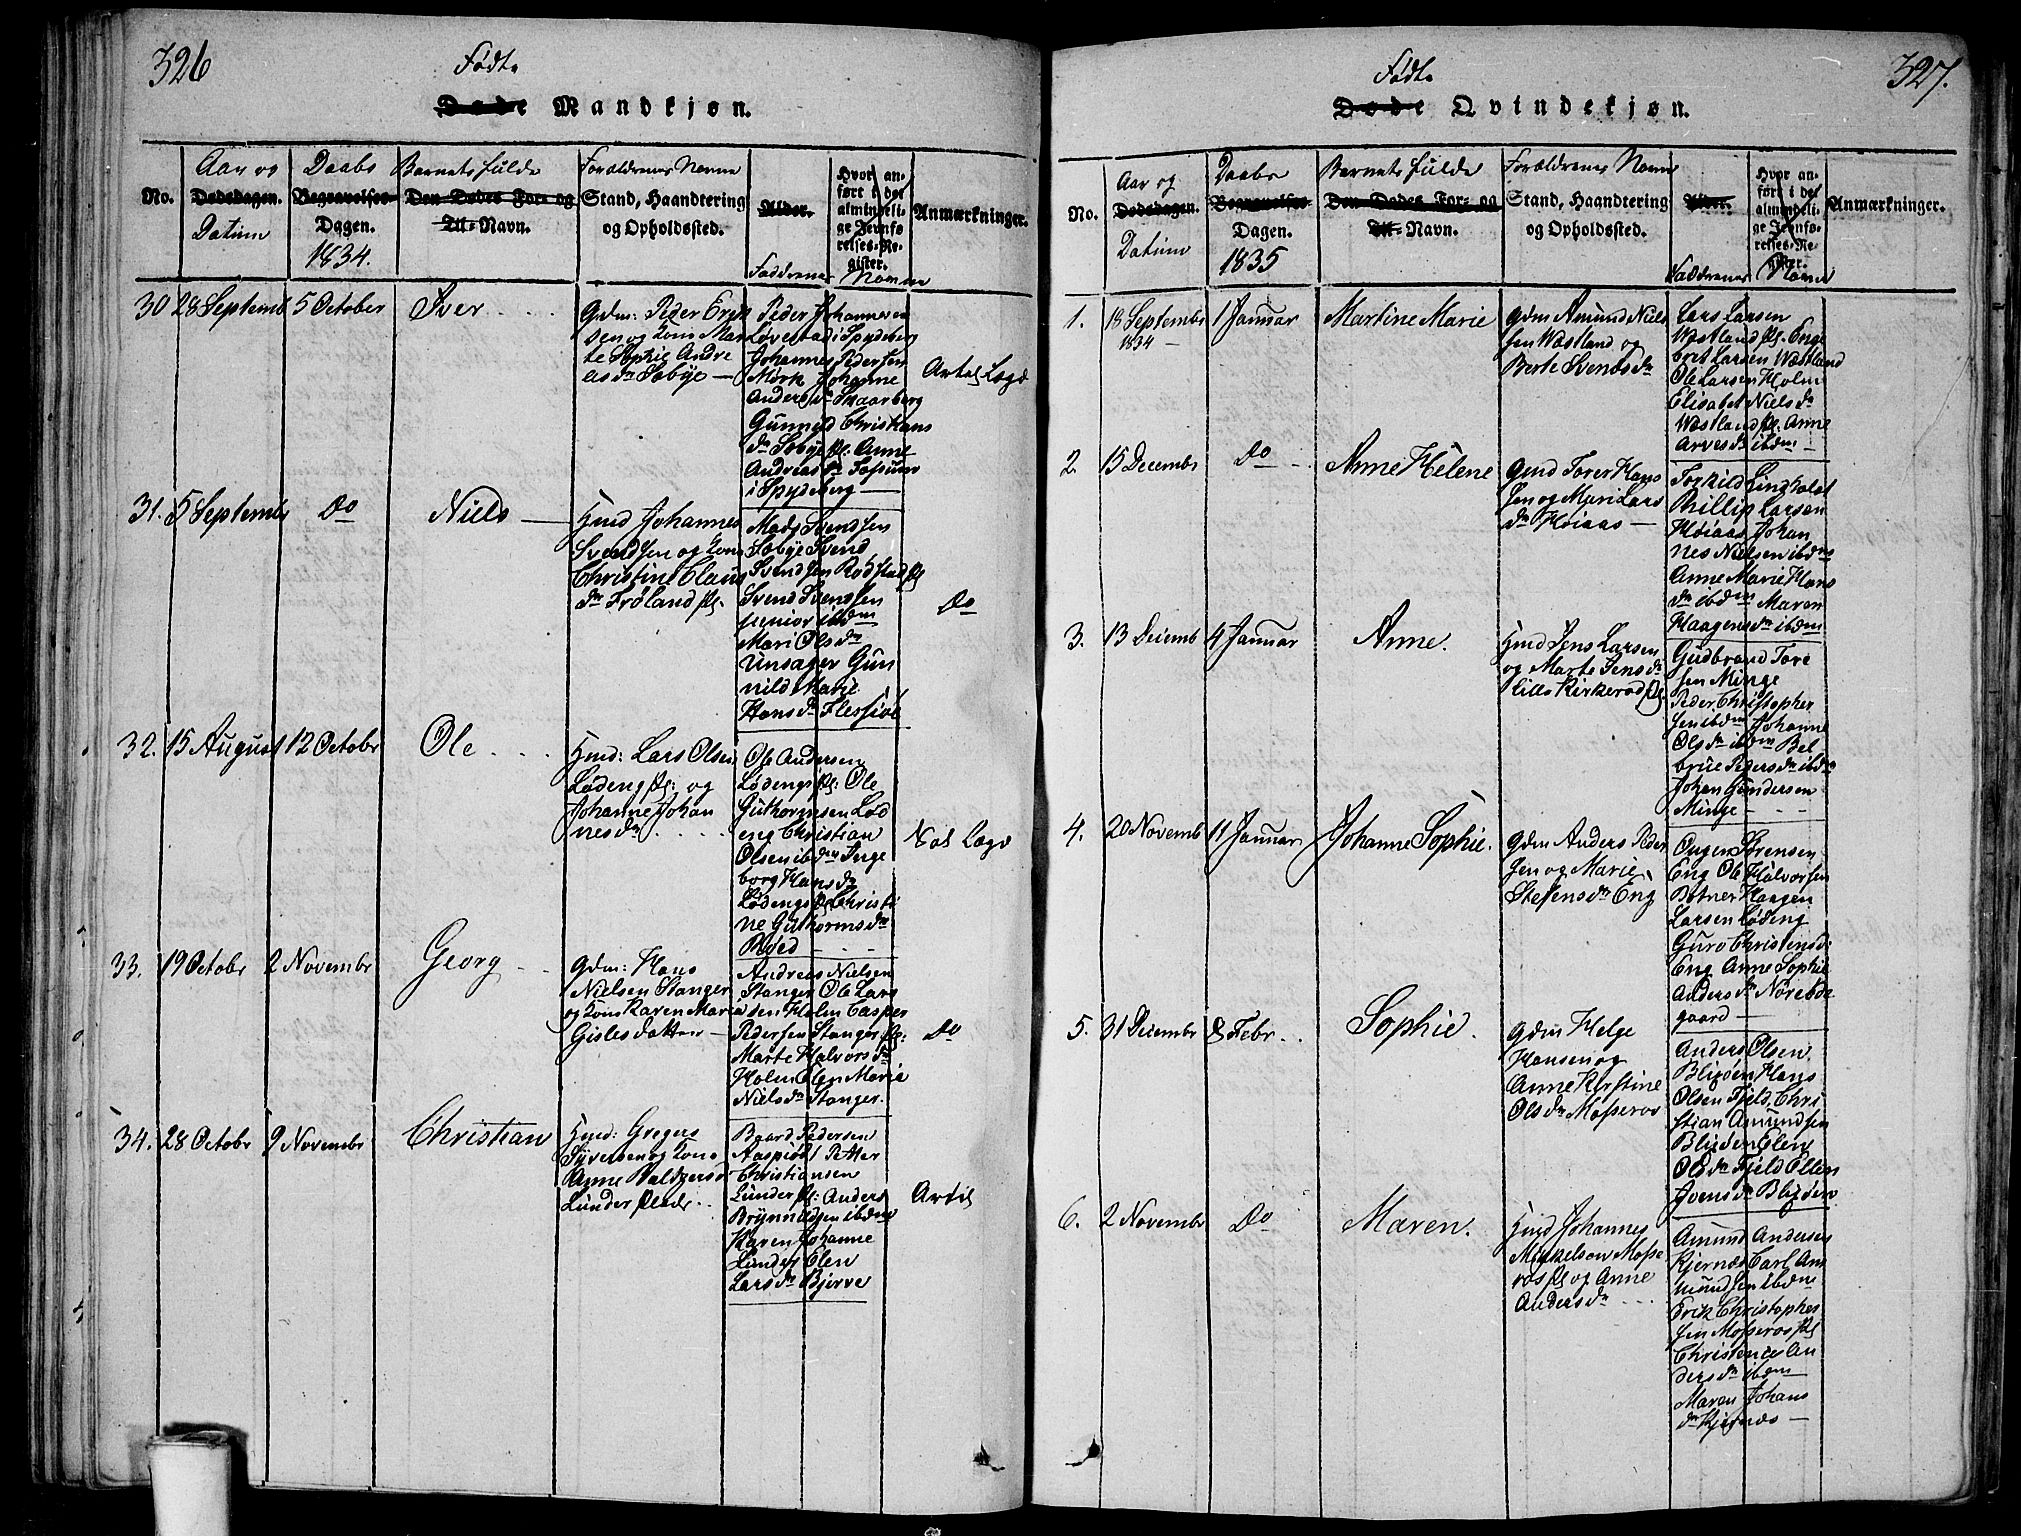 326
Født
Døde Mandkjøn.
No.
Aar og
Dødsdagen.
Datum
Daabs
Begravelses-
Dagen.
1834.
Barnets fulde
Den Dødes For- og
Til-Navn.
Forældrenes Navne
Stand, Haandtering
og Opholdssted.
Alder.
Hvor an-
ført i det
almindeli-
ge Jevnfø-
relses-Re-
gister.
Faddernes Navne
Anmærkninger.
30
28 Septemb
5 October
Iver
Gdm: Peder Erik
sen og Kone Mar
te Sophie Andre
asdr Sobye
Peder Johannesen
Løvestad i Spydeberg
Johannes Pedersen
Mørk Johanne
Andersdr Skaarberg
Gunnild Christians
dr Sobye pl. Anne
Andreasdr Fossum
i Spydeberg
31.
5 Septembr
Do
Niels
Hmd Johannes
Svendsen og Kone
Christine Claus
dr Frøland pl.
Mads Svendsen
Sobye Svend
Svendsen Rodstad pl
Svend Svendsen
junior ibdm
Mari Olsdr
Unsager Gun
nild Marie
Hansdr Flessiøe
Do
32.
15 August
12 Octobr
Ole
Hmd: Lars Olsen
Lødeng pl: og
Johanne Johan
nesdr
Ole Andersen
Lødengs pl: Ole
Guthormsen Lød
eng Christian
Olsen ibdm Inge
borg Hansdr
Lødengs pl Christi
ne Guthormsdr
Røed
33.
19 Octobr
2 Novembr
Georg
Gdm: Hans
Nielsen Stanger
og Kone Karen Maria
Gislesdatter
Andreas Nielsen
Stanger Ole Lars
sen Holm Casper
Pedersen Stanger pl:
Marte Halvorsdr
Holm Elen Marie
Nielsdr Stanger.
Do
34.
28 Octobr
9 Novembr
Christian
Hmd: Gregers
Syversen og Kone
Anne
Lunder plads
Baard Pedersen
Petter
Christiansen
Lunder pl: Anders
Brynnildsen ibdm
Karen Johanne
Lunder Elen
Larsdr Bjerve
327.
Født
Døde Qvindekjøn.
No.
Aar og
Dødsdagen.
Datum
Daabs
Begravelses-
Dagen.
1835
Barnets fulde
Den Dødes For- og
Til-Navn.
Forældrenes Navne
Stand, Haandtering
og Opholdssted.
Alder.
Hvor an-
ført i det
almindeli-
ge Jevnfø-
relses-Re-
gister.
Faddernes Navne
Anmærkninger.
1.
18 Septembr
1834
1 Januar
Martine Marie
Gdm Amund Niels
sen Wæstland og
Berte Svensdr
Lars Larsen
Wæstland pl. Enge
bret Larsen Wæstland
Ole Larsen Holm
Elisabet Nielsdr
Wæstland pl. Anne
Arvesdr ibdm
2.
15 Decembr
Do
Anne Helene
Gmd Torer Hans
sen og Mari Lars
dr Høiaas
Torkild Lindholdt
Phillip Larsen
Høiaas Johan
nes Nielsen ibdm
Anne Marie Hans
dr ibdm Maren
Haagensdr ibdm
3.
13 Decemb
4 Januar
Anne.
Hmd Jens Larsen
og Marte Jensdr
Lille Kirkerød pl
Gudbrand Tore
sen Minge
Peder Christopher
sen ibdm Johanne
Olsdr ibdm Bel
brue Pedersdr ibdm
Johan Gundersen
Minge
4.
20 Novemb
11 Januar
Johanne Sophie.
Gdm Anders Peder
sen og Marie
Stefensdr Eng
Ougen Sørensen
Eng Ole Halvorsen
Botner Haagen
Larsen Løding
Guro Christensdr
Eng Anne Sophie
Andersdr Norebde
gaard
5.
31 Decembr
8 Febr.
Sophie.
Gdm Helge
Hansen og
Anne Kirstine
Olsdr Mosseros
Anders Olsen
Bligden Hans
Olsen Fjeld, Chri
stian Amundsen
Bligden Elen
Olsdr Fjeld Ellen
Ivensdr Bligden
6.
2 Novembr
Do
Maren.
Hmd Johannes
Mikkelsen Mosse
ros pl og Anne
Andersdr
Amund Andersen
Kjernæs Carl Am
mundsen ibdm
Erik Christopher
sen Mosseros pl
Christence An
dersdr ibdm
Maren Johans
dr Kjernæs